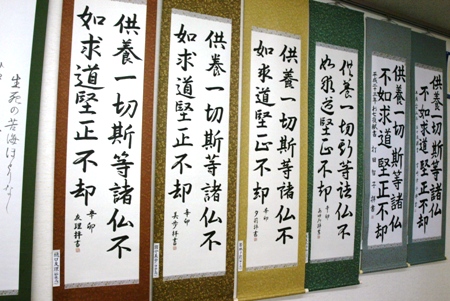 供養一切斯等諸仏
不如求道堅正不却
供養一切斯等諸仏
不如求道堅正不却
供養一切斯等諸仏不
如求道堅正不却
辛卯
供養一切斯等諸仏不
如求道堅正不却
辛卯
拝書
供養一切斯等諸仏不
如求道堅正不却
辛卯
美歩拝書
供養一切斯等諸仏不
如求道堅正不却
辛卯
友理拝書
生死の苦海ほとりなし